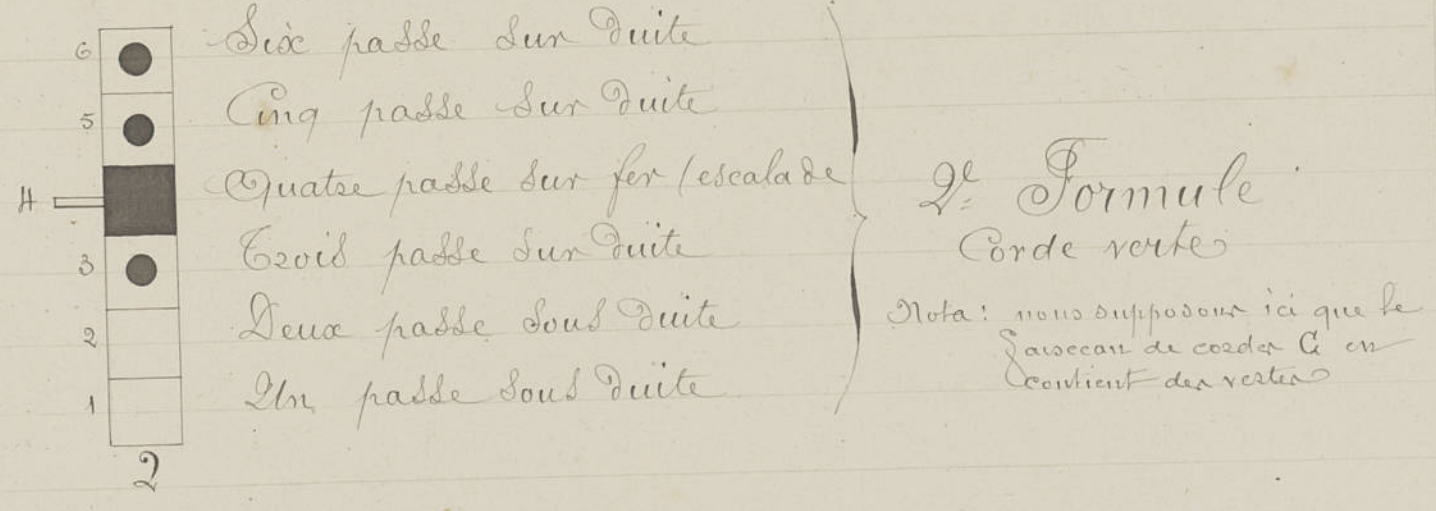 6 Six passe sur duite
5 Cinq passe sur duite
4 Quatre passe sur fer (escalade
3 Trois passe sur duite
2 Deux passe sous duite
1 Un passe sous duite
2
2e Formule
Corde verte
Nota: nous supposons ici que le
faisceau de cordes G en
contient des vertes